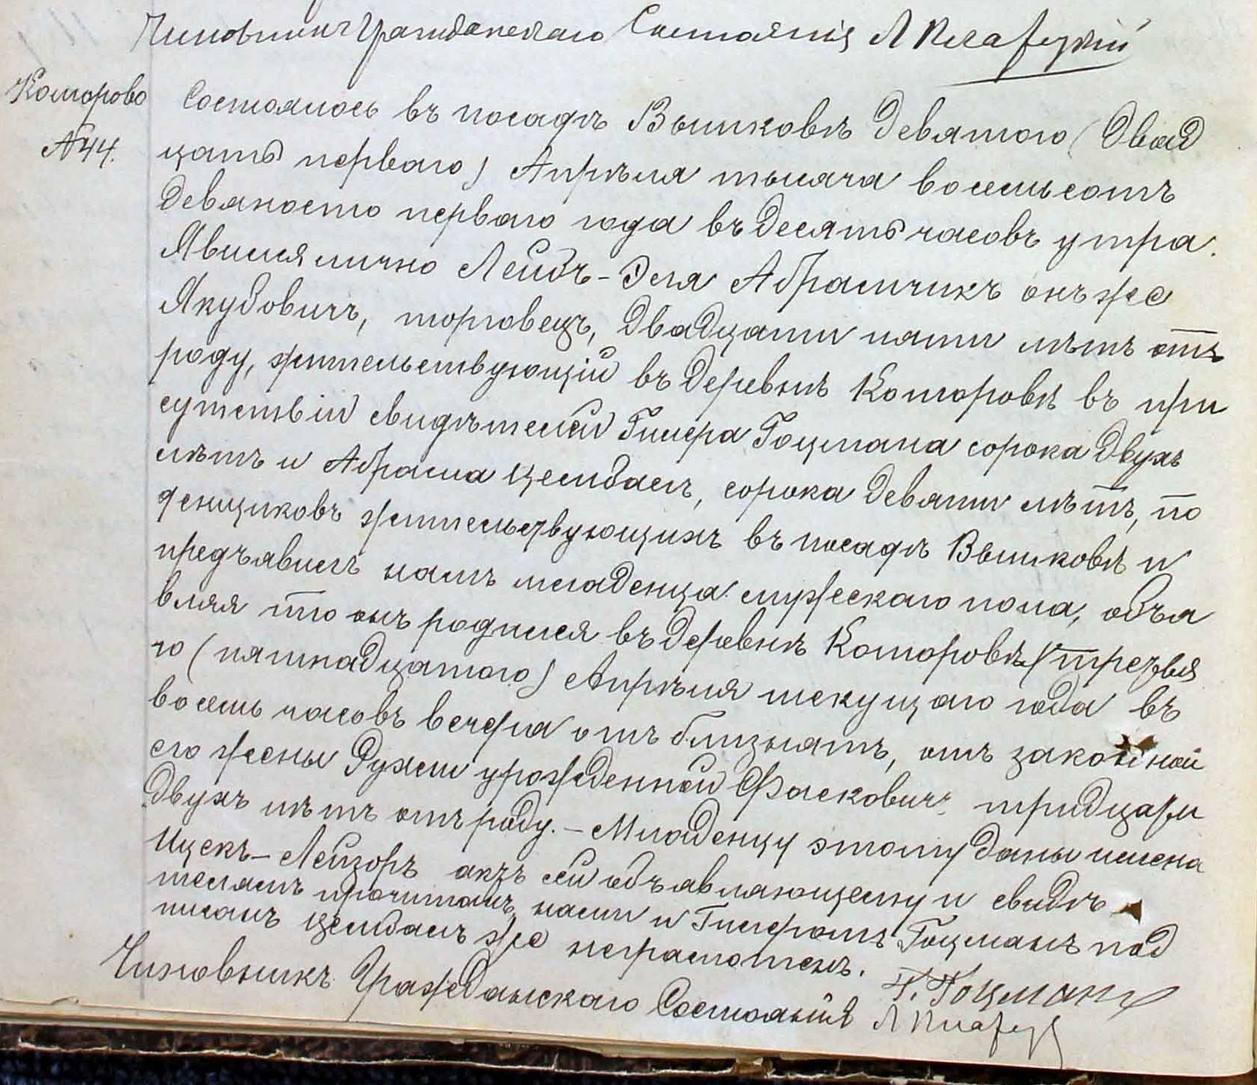 Чиновникъ Гражданскаго Состоянія
Коморово
№44.
Состоялось въ посадѣ Вышковѣ девятого (двад
цать перваго) Апрѣля тысяча восемьсотъ
девяносто перваго года въ десять часовъ утра.
Явился лично Лейбъ-Эля Абрамчикъ онъ же
Якубовичъ, торговецъ, двадцати пяти лѣтъ отъ
роду, жительствующій въ деревнѣ Коморовѣ въ при
сутствіи свидѣтелей Гилера Гоцмана сорока двухъ
лѣтъ и Абрама Цембаль, сорока девяти лѣтъ, по
денщиковъ жительствующихъ въ посадѣ Вышковѣ и
предъявилъ намъ младенца мужескаго пола, объя
вляя что онъ родился въ деревнѣ Коморовѣ третья
го (пятнадцатого) Апрѣля текущаго года въ
восемь часовъ вечера отъ близнятъ, отъ законной
его жены Рухли урожденной Фасковичъ тридцати
двухъ лѣтъ отъ роду. - Младенцу этому даны имена
Ицекъ-Лейзоръ актъ сей объявляющему и свидѣ
телямъ прочитанъ, нами и Гилеромъ Гоцманъ под
писанъ Цембаль же неграмотенъ.
Г. Гоцманъ
Чиновникъ Гражданскаго Состоянія